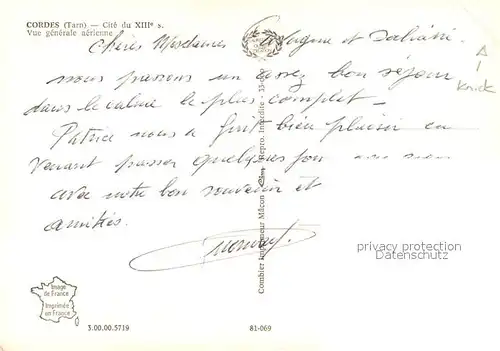 CORDES (Tarn) — Cité du XIIIᵉ s.
Vue générale aérienne
Chères Mesdames et
nous passons un assez bon séjour
dans le calme le plus complet —
Patrice nous a fait bien plaisir en
venant passer quelques jours
avec notre bon souvenir et
amitiés.
Knick
Combier Imprimeur Mâcon Repro. Interdite
privacy protection
service
Image
de France
Imprimée
en France
3.00.00.5719
81-069